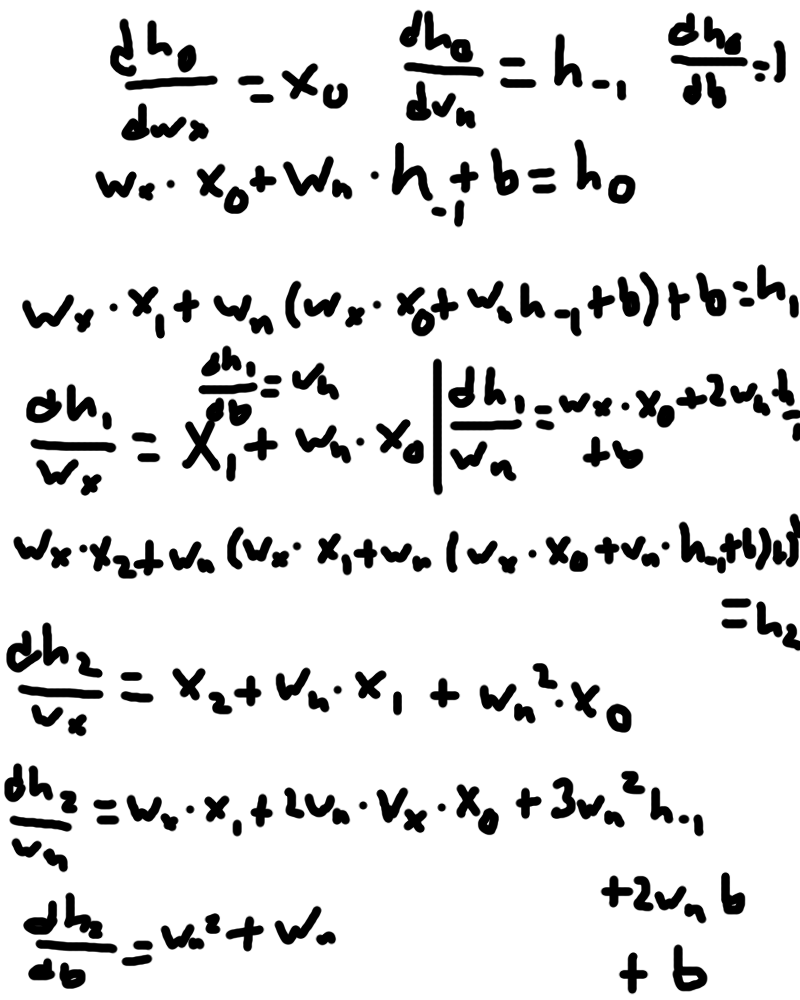 dh₀/dwₓ = x₀   dh₀/dwₕ = h₋₁   dh₀/db = 1
wₓ · x₀ + wₕ · h₋₁ + b = h₀
wₓ · x₁ + wₕ (wₓ · x₀ + wₕ h₋₁ + b) + b = h₁
dh₁/db = wₕ
dh₁/wₓ = x₁ + wₕ · x₀ | dh₁/wₕ = wₓ · x₀ + 2wₕ · h₋₁ + b
wₓ · x₂ + wₕ (wₓ · x₁ + wₕ (wₓ · x₀ + wₕ · h₋₁ + b) b)
= h₂
dh₂/wₓ = x₂ + wₕ · x₁ + wₕ² · x₀
dh₂/wₕ = wₓ · x₁ + 2wₕ · wₓ · x₀ + 3wₕ² h₋₁
+ 2wₕ b
+ b
dh₂/db = wₕ² + wₕ